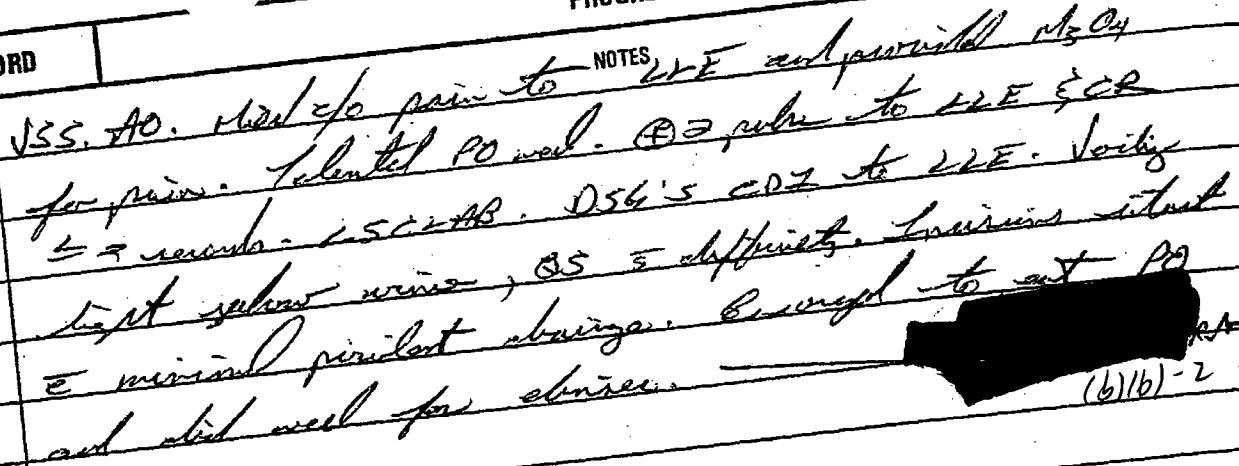 ORD
NOTES
VSS. AO. c/o pain to LLE and provided MSO4
for pain. Tolerated PO well. ⊕ 2 pulse to LLE c̄ CR
≤ 3 seconds. LSCTAB. DSG's CDI to LLE. Voiding
light yellow urine, QS s̄ difficulty. Incisions intact
c̄ minimal drainage. Encouraged to eat PO
and did well for dinner.
(b)(6)-2